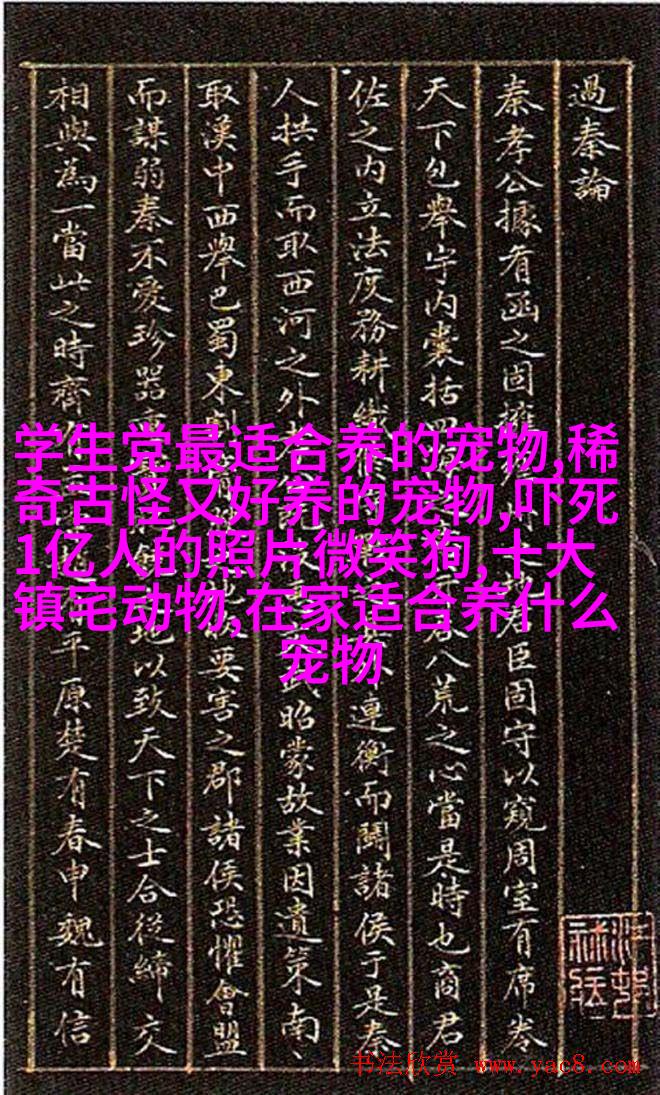 過秦論
秦孝公據有函之固擁君臣固守以窺周室有席卷
天下包舉宇內囊括四八荒之心當是時也商君
佐之內立法度務耕織連衡而鬭諸侯于是秦
人拱手而取西河之外武昭蒙故業因遺策南
取漢中西舉巴蜀東割要害之郡諸侯恐懼會盟
而謀弱秦不愛珍器地以致天下之士合從締交
相與為一當此之時齊平原楚有春申魏有信
学生党最适合养的宠物,稀
奇古怪又好养的宠物,吓死
1亿人的照片微笑狗,十大
镇宅动物,在家适合养什么
宠物
书法欣赏 www.yac8.com